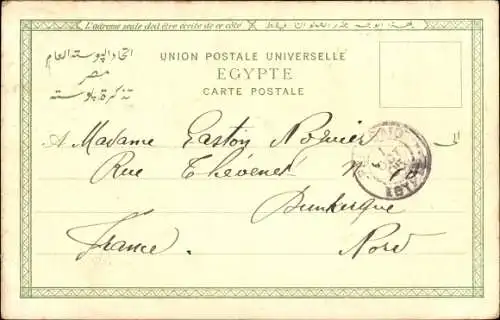 L'adresse seule doit être écrite de ce côté
اتحاد البوستة العام
مصر
تذكرة بوستة
UNION POSTALE UNIVERSELLE
EGYPTE
CARTE POSTALE
A Madame Gaston
Rue Thévenet
Dunkerque
France. Nord
الى